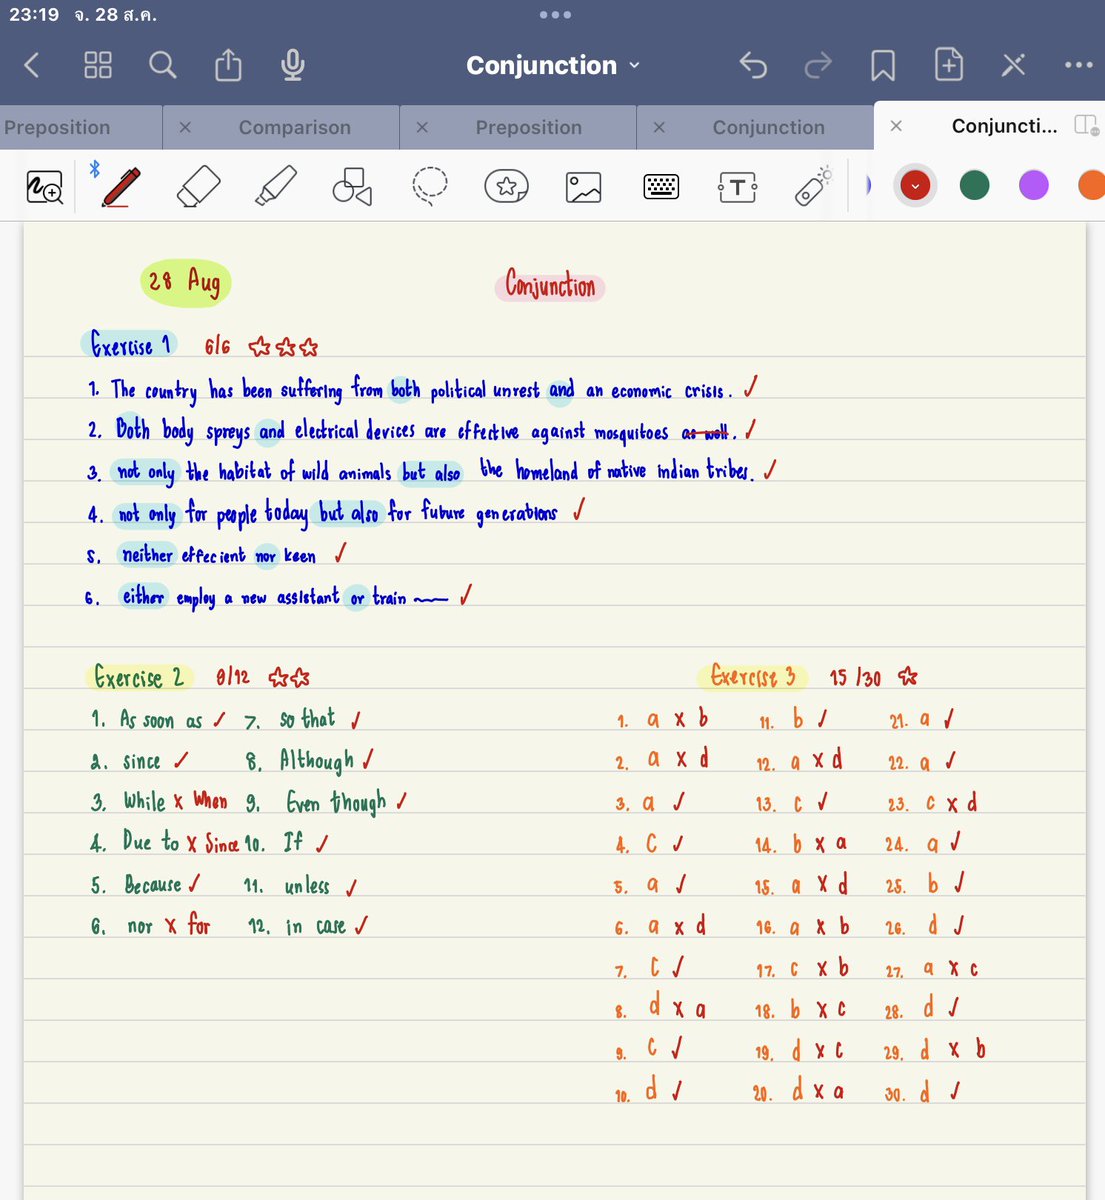 23:19 จ. 28 ส.ค.
Conjunction
Preposition
Comparison
Preposition
Conjunction
Conjuncti...
28 Aug
Conjunction
Exercise 1 6/6
1. The country has been suffering from both political unrest and an economic crisis. ✓
2. Both body spreys and electrical devices are effective against mosquitoes as well. ✓
3. not only the habitat of wild animals but also the homeland of native indian tribes. ✓
4. not only for people today but also for future generations ✓
5. neither effecient nor keen ✓
6. either employ a new assistant or train ✓
Exercise 2 9/12
1. As soon as ✓ 7. so that ✓
2. since ✓ 8. Although ✓
3. While x When 9. Even though ✓
4. Due to x Since 10. If ✓
5. Because ✓ 11. unless ✓
6. nor x for 12. in case ✓
Exercise 3 15/30
1. a x b 11. b ✓ 21. a ✓
2. a x d 12. a x d 22. a ✓
3. a ✓ 13. c ✓ 23. c x d
4. C ✓ 14. b x a 24. a ✓
5. a ✓ 15. a x d 25. b ✓
6. a x d 16. a x b 26. d ✓
7. c ✓ 17. c x b 27. a x c
8. d x a 18. b x c 28. d ✓
9. c ✓ 19. d x c 29. d x b
10. d ✓ 20. d x a 30. d ✓